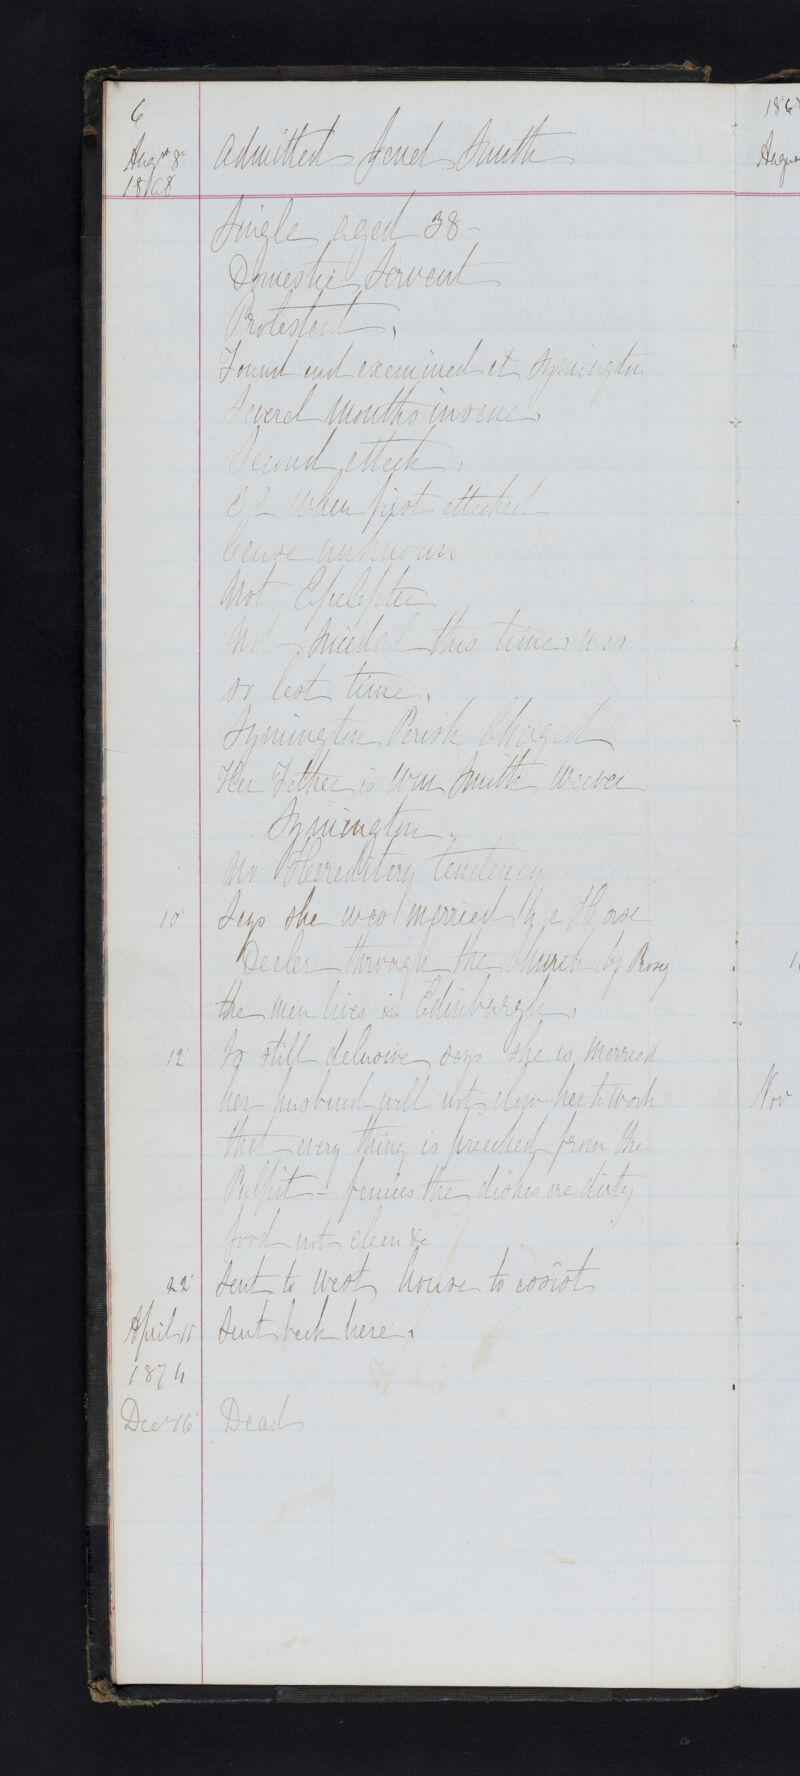 6
Augst 8
1868
Admitted Janet Smith
Single aged 38 -
Domestic Servant
Protestant,
Found and examined at Symington
Several Months insane,
Second attack,
32 when first attacked
Cause unknown
Not Epileptic
Not Suicidal this time was
so last time.
Symington Parish Charged
Her Father is Wm Smith Weaver
Symington.
No Hereditary tendency
10 Says she was married to a Horse
Dealer through the Church by
the man lives in Edinburgh.
12 Is still delusive says she is married
her husband will not allow her to work
that every thing is preached from the
Pulpit - fancies the dishes are dirty
food not clean &c
22 Sent to West house to assist
April 15 Sent back here.
1874
Dec 16 Dead
186
Augus
1
Nov